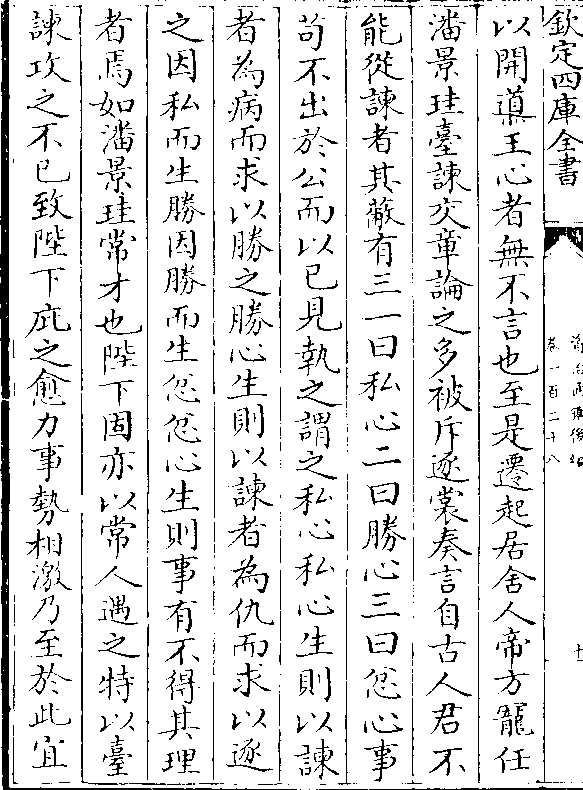 欽定四庫全書
卷一百二十八
十
以開導王心者無不言也至是遷起居舍人帝方寵任
潘景珪臺諫交章論之多被斥逐裳奏言自古人君不
能從諫者其蔽有三一曰私心二曰勝心三曰忿心事
苟不出於公而以已見執之謂之私心私心生則以諫
者為病而求以勝之勝心生則以諫者為仇而求以逐
之因私而生勝因勝而生忿忿心生則事有不得其理
者焉如潘景珪常才也陛下固亦以常人遇之特以臺
諫攻之不已致陛下庇之愈力事勢相激乃至於此宜